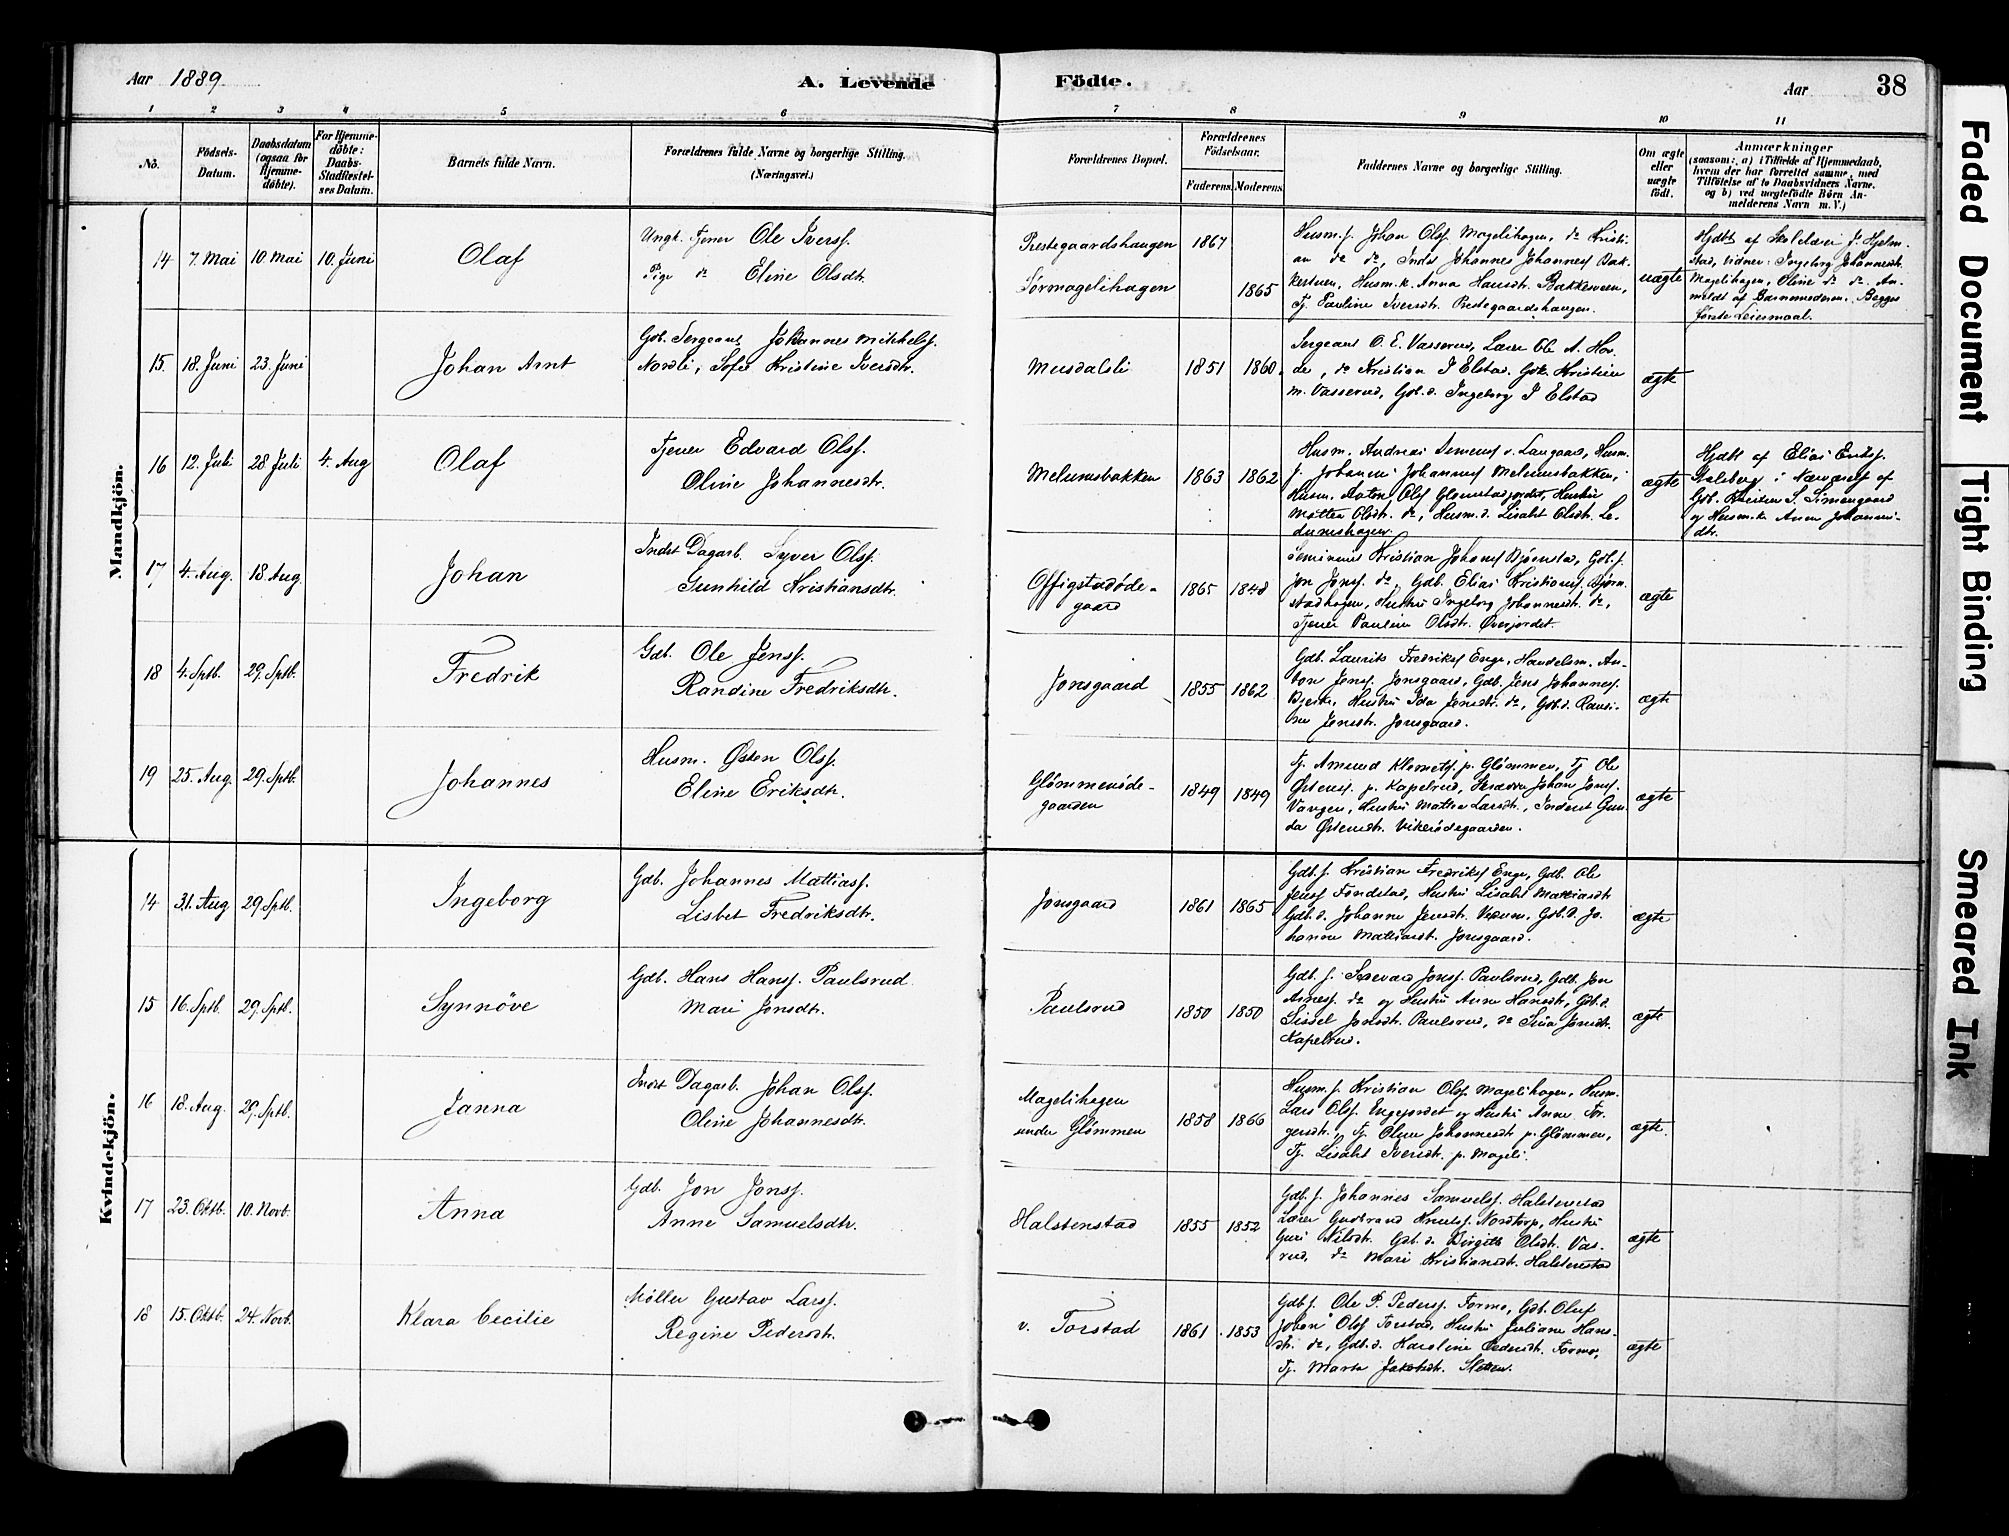 Aar 1889.
A. Levende
Födte.
Aar
38
1 2 3 4 5 6 7 8 9 10 11
No.
Födsels-Datum.
Daabsdatum (ogsaa for Hjemme-døbte).
For Hjemme-døbte: Daabs-Stadfæstel-ses Datum.
Barnets fulde Navn.
Forældrenes fulde Navne og borgerlige Stilling. (Næringsvei.)
Forældrenes Bopæl.
Forældrenes Födselsaar.
Faderens. Moderens.
Faddernes Navne og borgerlige Stilling.
Om ægte eller uægte født.
Anmærkninger
(saasom: a) i Tilfælde af Hjemmedaab,
hvem der har forrettet samme, med
Tilføielse af to Daabsvidners Navne.
og b) ved uægtefødte Børn An-
melderens Navn m. V.)
Mandkjön.
14 7. Mai 10 Mai 10. Juni Olaf
Ungk. Tjener Ole Iverss.
Pige do Eline Olsdtr.
Prestegaardshaugen 1867
Sørmagelihagen 1865
Husm. s. Johan Olss. Magelihagen, do Kristi-
an do do, Inds Johannes Johanness Bak-
kestuen, Husm. k. Anna Hansdtr. Bakkeveen,
Tj. Pauline Iversdtr. Prestegaardshaugen.
uægte
Hjdbt af Skolelærer J. Hjelm-
stad, Vidner: Ingeborg Johannesdtr.
Magelihagen, Oline do do. An-
meldt af Barnemoderen. Begges
første Leiermaal.
15. 18. Juni 23. Juni Johan Arnt
Gdb. Sergeant Johannes Mikkels.
Nordli, Sofie Kristine Iversdtr.
Musdalsli 1851 1860.
Sergeant O. E. Vasserud, Lærer Ole A. Hov-
de, do Kristian J Elstad. Gdk. Kristine
M. Vasserud, Gdb. d. Ingeborg J Elstad
ægte
16 12. Juli 28 Juli 4. Aug Olaf
Tjener Edvard Olss.
Oline Johannesdtr.
Melumsbakken 1863 1862
Husm. Andreas Simens v. Langaard, Husm.
s. Johannes Johanness Melumsbakken,
Husm. Anton Olss Glomstadjordet, Hustru
Mathea Olsdtr. do, Husm. d. Lisabet Olsdtr. Le-
dumshagen
ægte
Hjdbt af Elias Eriks.
Stalsberg i Nærværelse af
Gdb. S. Simengaard
og Husm. k. Anne Johannes-
dtr.
17 4. Aug. 18 Aug. Johan
Indst Dagarb. Syver Olss.
Gunhild Kristiansdtr.
Offigstadøde-
gaard 1865 1848
Seminarist Kristian Johans Bjørnstad, Gdb. s.
Jon Jonss. do, Gdb. Elias Kristians Bjørn-
stadhagen, Hustru Ingeborg Johannesdt. do,
Tjener Pauline Olsdtr. Øverjordet.
ægte
18 4. Sptb. 29. Sptb. Fredrik
Gdb. Ole Jenss.
Randine Fredriksdtr.
Jonsgaard 1855 1862
Gdb. Laurits Fredriks Enge, Handelsm. An-
ton Jenss. Jonsgaard, Gdb. Jens Johanness.
Bjerke, Hustru Ida Jensdtr. do, Gdb. d. Randi-
ne Jensdtr. Jonsgaard.
ægte
19 25. Aug. 29. Sptb. Johannes
Husm. Østen Olss.
Eline Eriksdtr.
Glømmenøde-
gaarden 1849 1849
Tj. Amund Klomets. p. Glømmen, Tj. Ole
Østens. p. Kapelrud, Skrædder Johan Jonss.
Vangen, Hustru Mathea Larsdtr., Inderst Gun-
da Østensdtr. Vikerødegaarden.
ægte
Kvindekjön.
14 31. Aug 29 Sptb. Ingeborg
Gdb. Johannes Mattiass.
Lisbet Fredriksdtr.
Jonsgaard 1861 1865
Gdb. s. Kristian Fredriks Enge, Gdb. Ole
Jenss Fondstad, Hustru Lisabet Mattiasdt
Gdb. d. Johanne Jensdt. , Gdb. d. Jo-
hanne Mattiasdt. Jonsgaard.
ægte
15 16. Sptb. 29. Sptb. Synnöve
Gdb. Hans Hanss. Paulsrud
Mari Jonsdtr.
Paulsrud 1850 1850
Gdb. s. Syvard Jonss. Paulsrud, Gdb. Jon
Arness. do og Hustru Anne Hansdt., Gdb. d.
Sissel Jonsdt. Paulsrud, do Sina Jonsdt.
Kapelrud.
ægte
16 18. Aug. 29. Sptb. Janna
Indst Dagarb. Johan Olss.
Oline Johannesdtr.
Magelihagen
under Glømmen 1858 1866
Husm. s. Kristian Olss Magelihagen, Husm.
Lars Olss. Engejordet og Hustru Anne Tor-
gersdt., Tj. Oline Johannesdt p. Glømmen,
Tj. Lisabet Iversdt. p. Mageli.
ægte.
17 23. Oktb. 10. Novb. Anna
Gdb. Jon Jonss.
Anne Samuelsdtr.
Halstenstad 1855 1852
Gdb. s. Johannes Samuels. Halstenstad
Lærer Gudbrand Knuts. Nordtorp, Hustru
Guri Nilsdt. Gdb. d. Birgitte Olsdt. Vas-
rud, do Mari Kristiansdt. Halstenstad
ægte
18 15. Oktb. 24. Novb. Klara Cecilie
Møller Gustav Larss.
Regine Pedersdt.
v. Torstad 1861 1853
Gdb s. Ole P. Peders. Formo, Gdb. Oluf
Johan Olss Torstad, Hustru Juliane Hans-
dt. do, Gdb. d. Karoline Pedersdt. Formo,
Tj. Marta Jakobsdt. Sletten.
ægte
Faded Document
Tight Binding
Smeared Ink